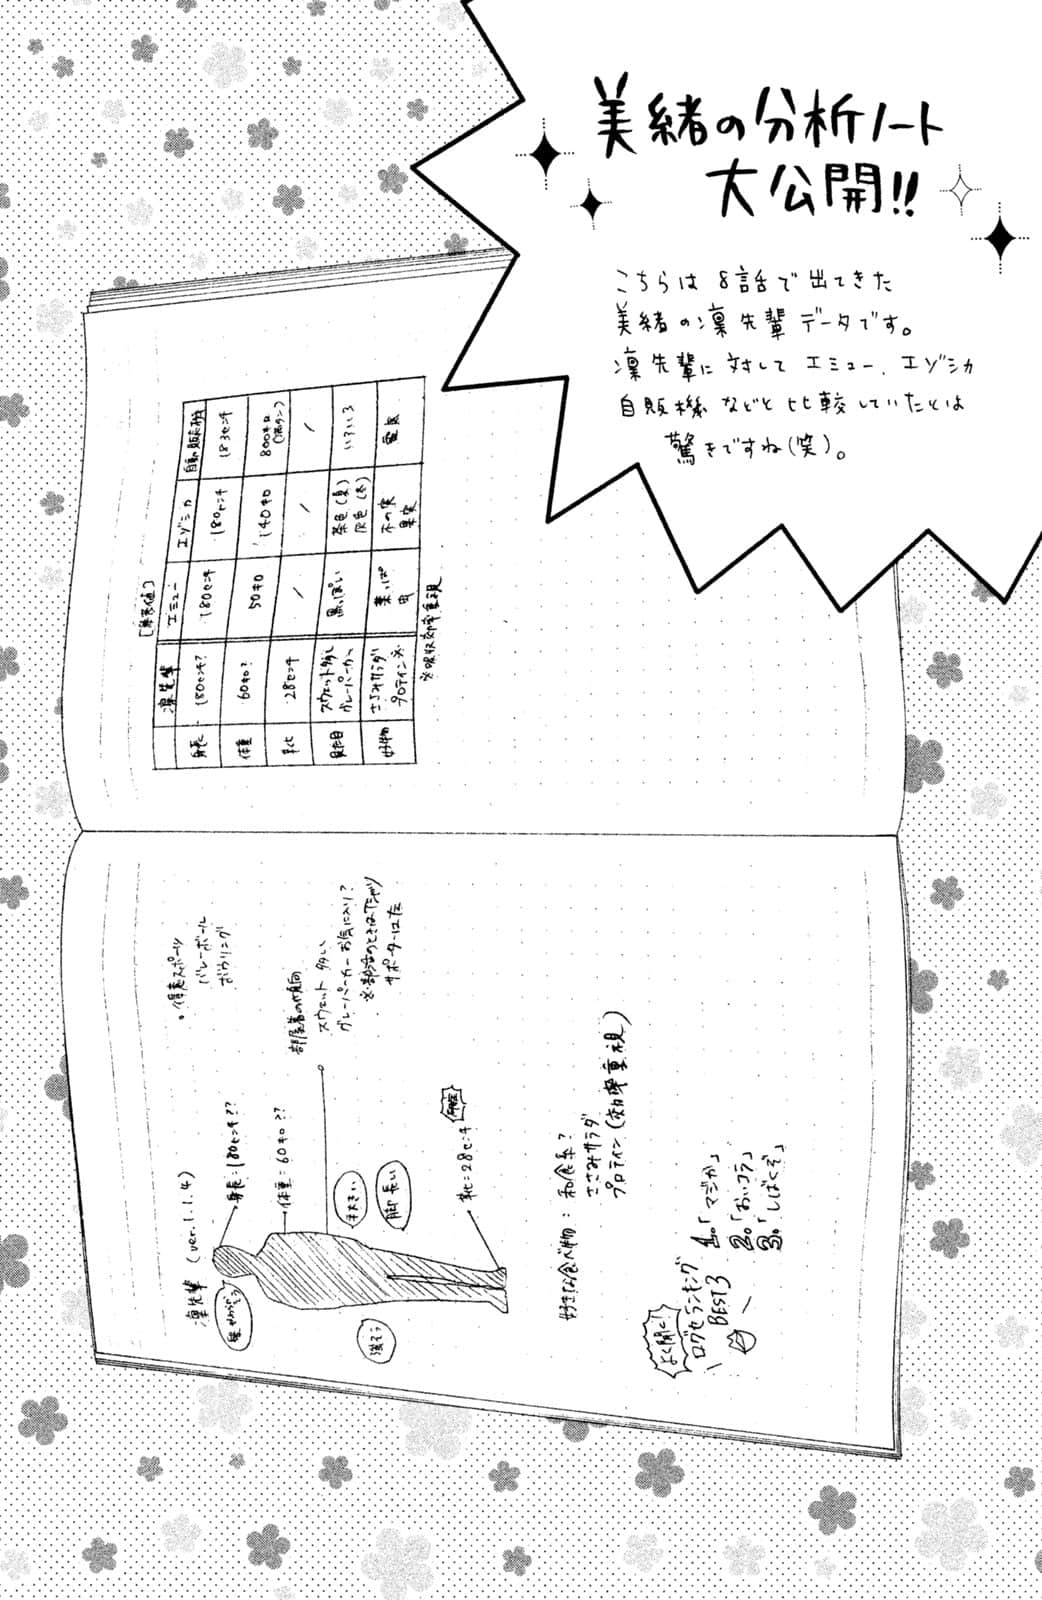 美緒の分析ノート
大公開!!
こちらは8話で出てきた
美緒の凛先輩データです。
凛先輩に対してエミュー、エゾシカ
自販機などと比較していたとは
驚きですね(笑)。
凛先輩 (ver.1.1.4)
身長=180センチ??
体重=60キロ??
髪やわらかそう
手大きい
脚長い
強そう
靴=28センチ
・得意スポーツ
バレーボール
ボウリング
部屋着の傾向
スウェット多い
グレーパーカーお気に入り?
※部活のときはTシャツ
サポーターはた
好きな食べ物:和食系?
ささみサラダ
プロテイン(効率重視)
よく聞く!
口グセランキング
BEST3
1.「マジか」
2.「おいコラ」
3.「しばくぞ」
[参考値]
凛先輩 エミュー エゾシカ 自動販売機
身長 180センチ? 180センチ 180センチ 183センチ
体重 60キロ? 50キロ 140キロ 800キロ(満タン)
靴 28センチ / / /
見た目 スウェット多し グレーパーカー 黒っぽい 茶色(夏) 灰色(冬) いろいろ
好物 ささみサラダ プロテイン※ 葉っぱ 虫 木の実 果実 電気
※吸収効率重視